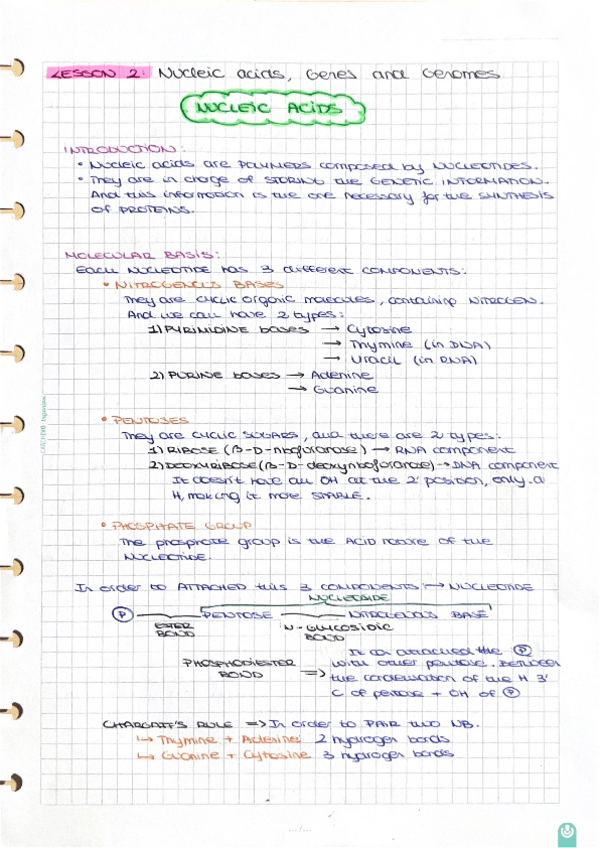 LESSON 2: Nucleic acids, Genes and Genomes
NUCLEIC ACIDS
INTRODUCTION:
• Nucleic acids are POLYMERS composed by NUCLEOTIDES.
• They are in charge of STORING the GENETIC INFORMATION.
And this information is the one necessary for the SYNTHESIS
OF PROTEINS.
MOLECULAR BASIS:
EACH NUCLEOTIDE has 3 different COMPONENTS:
• NITROGENOUS BASES
They are cyclic organic molecules, containing NITROGEN.
And we can have 2 types:
1) PYRIMIDINE bases → Cytosine
→ Thymine (in DNA)
→ Uracil (in RNA)
2) PURINE bases → Adenine
→ Guanine
• PENTOSES
They are CYCLIC SUGARS, and there are 2 types:
1) RIBOSE (β-D-ribofuranose) → RNA component
2) DEOXYRIBOSE (β-D-deoxyribofuranose) → DNA component
It doesn't have an OH at the 2' position, only a
H, making it more STABLE.
• PHOSPHATE GROUP
The phosphate group is the ACID nature of the
NUCLEOTIDE.
In order to ATTACHED this 3 COMPONENTS: → NUCLEOTIDE
NUCLEOSIDE
P PENTOSE NITROGENOUS BASE
ESTER BOND N-GLYCOSIDIC BOND
PHOSPHODIESTER BOND ⇒ It can attached the P
with other pentose. BETWEEN
the condensation of the H 3'
C of pentose + OH of P
CHARGAFF'S RULE ⇒ In order to PAIR TWO NB.
↳ Thymine + Adenine: 2 hydrogen bonds
↳ Guanine + Cytosine 3 hydrogen bonds